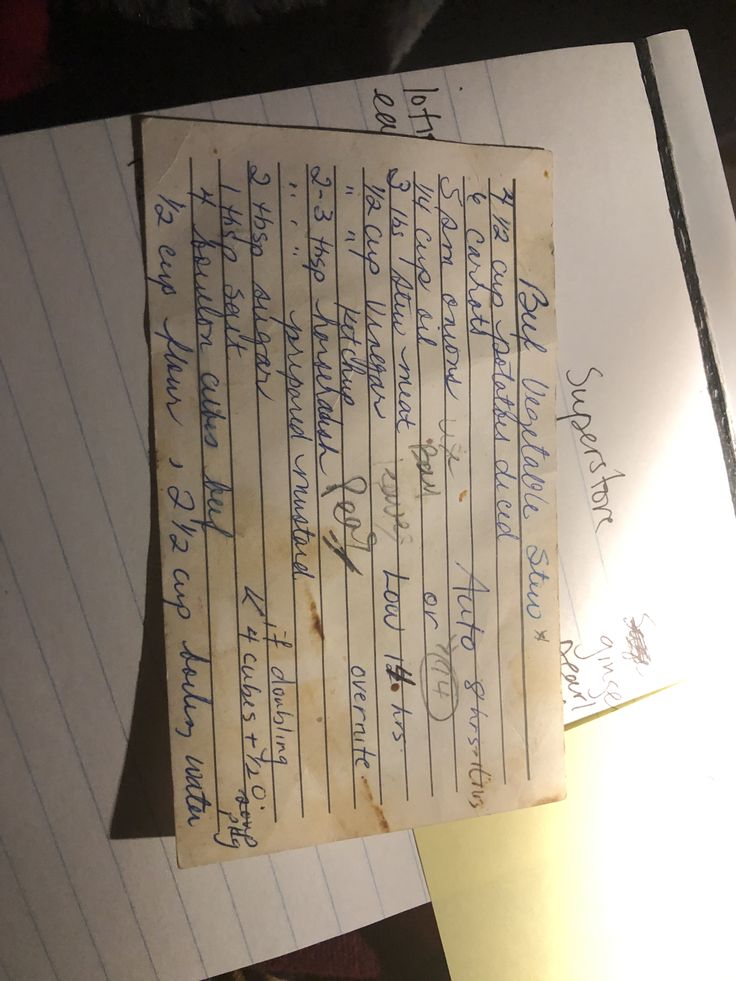 Beef Vegetable Stew *
4 1/2 cup potatoes diced
6 carrots Auto 8 hrs
5 sm onions use or 14
1/4 cup oil
3 lbs stew meat Low 14 hrs.
1/2 cup Vinegar overnite.
" " Ketchup
2-3 tbsp horseradish
" " " prepared mustard
2 tbsp sugar if doubling
1 tbsp salt 4 cubes + 1/2 O. soup pkg
4 bouillon cubes beef
1/2 cup flour, 2 1/2 cup boiling water
Superstore